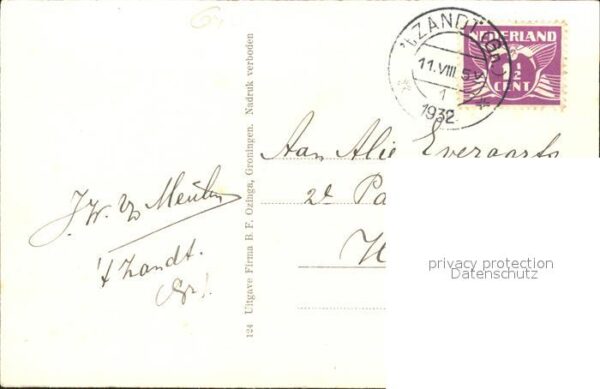 'tZANDT (Gn.)
11.VIII.5
1
1932
NEDERLAND
1 1/2
CENT
Aan Alie Everaarts
2e Pa
H
privacy protection
Datenschutz
J. W. v/d Meulen
't Zandt.
(Gr.).
124 Uitgave Firma B. F. Ozinga, Groningen. Nadruk verboden